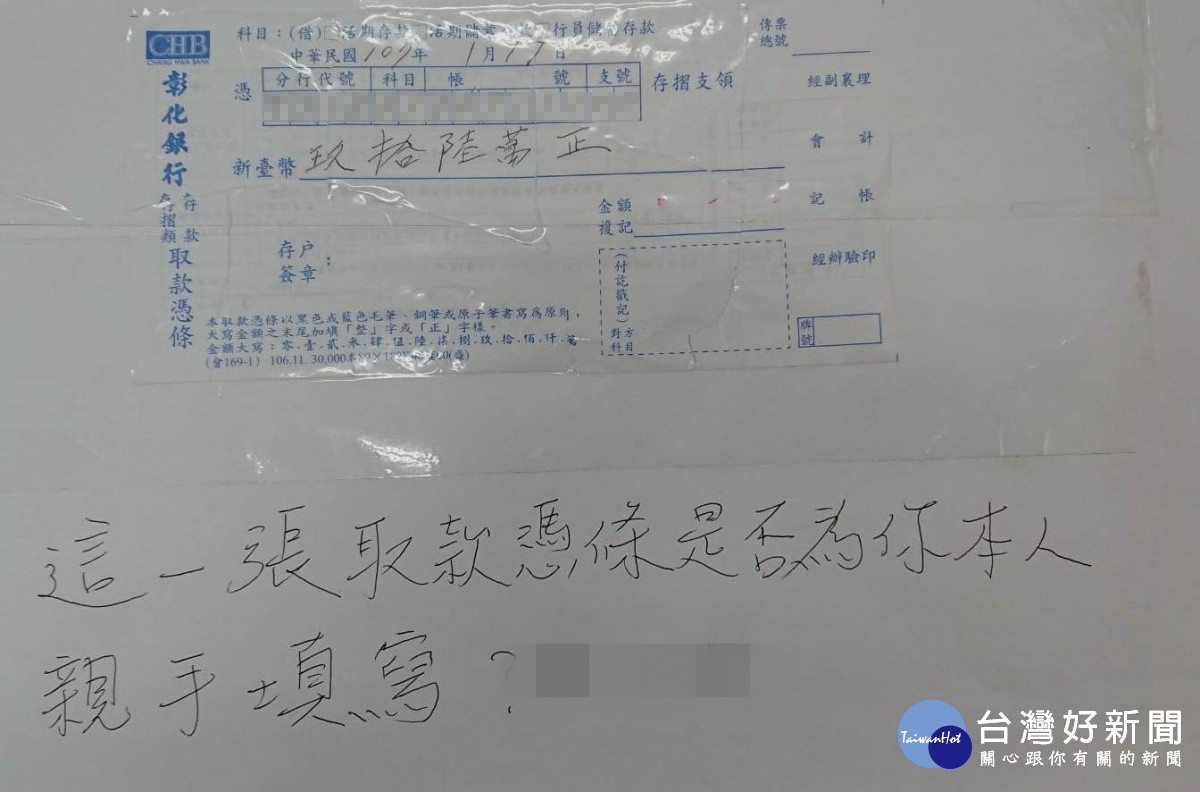 科目：(借)□活期存款 □活期儲蓄存款 □行員儲蓄存款
傳票
總號
CHB
CHANG HWA BANK
中華民國109年1月17日
彰化銀行
存摺類
存款
取款憑條
憑
分行代號 科目 帳 號 支號
存摺支領
經副襄理
新臺幣 玖拾陸萬正
會 計
金額
複記
記 帳
存戶
簽章：
(付訖戳記)
對方
科目
經辦驗印
牌號
本取款憑條以黑色或藍色毛筆、鋼筆或原子筆書寫為原則，
大寫金額之末尾加填「整」字或「正」字樣。
金額大寫：零.壹.貳.參.肆.伍.陸.柒.捌.玖.拾.佰.仟.萬
(會169-1) 106.11. 30,000本
這一張取款憑條是否為你本人
親手填寫？
TaiwanHot
台灣好新聞
關心跟你有關的新聞